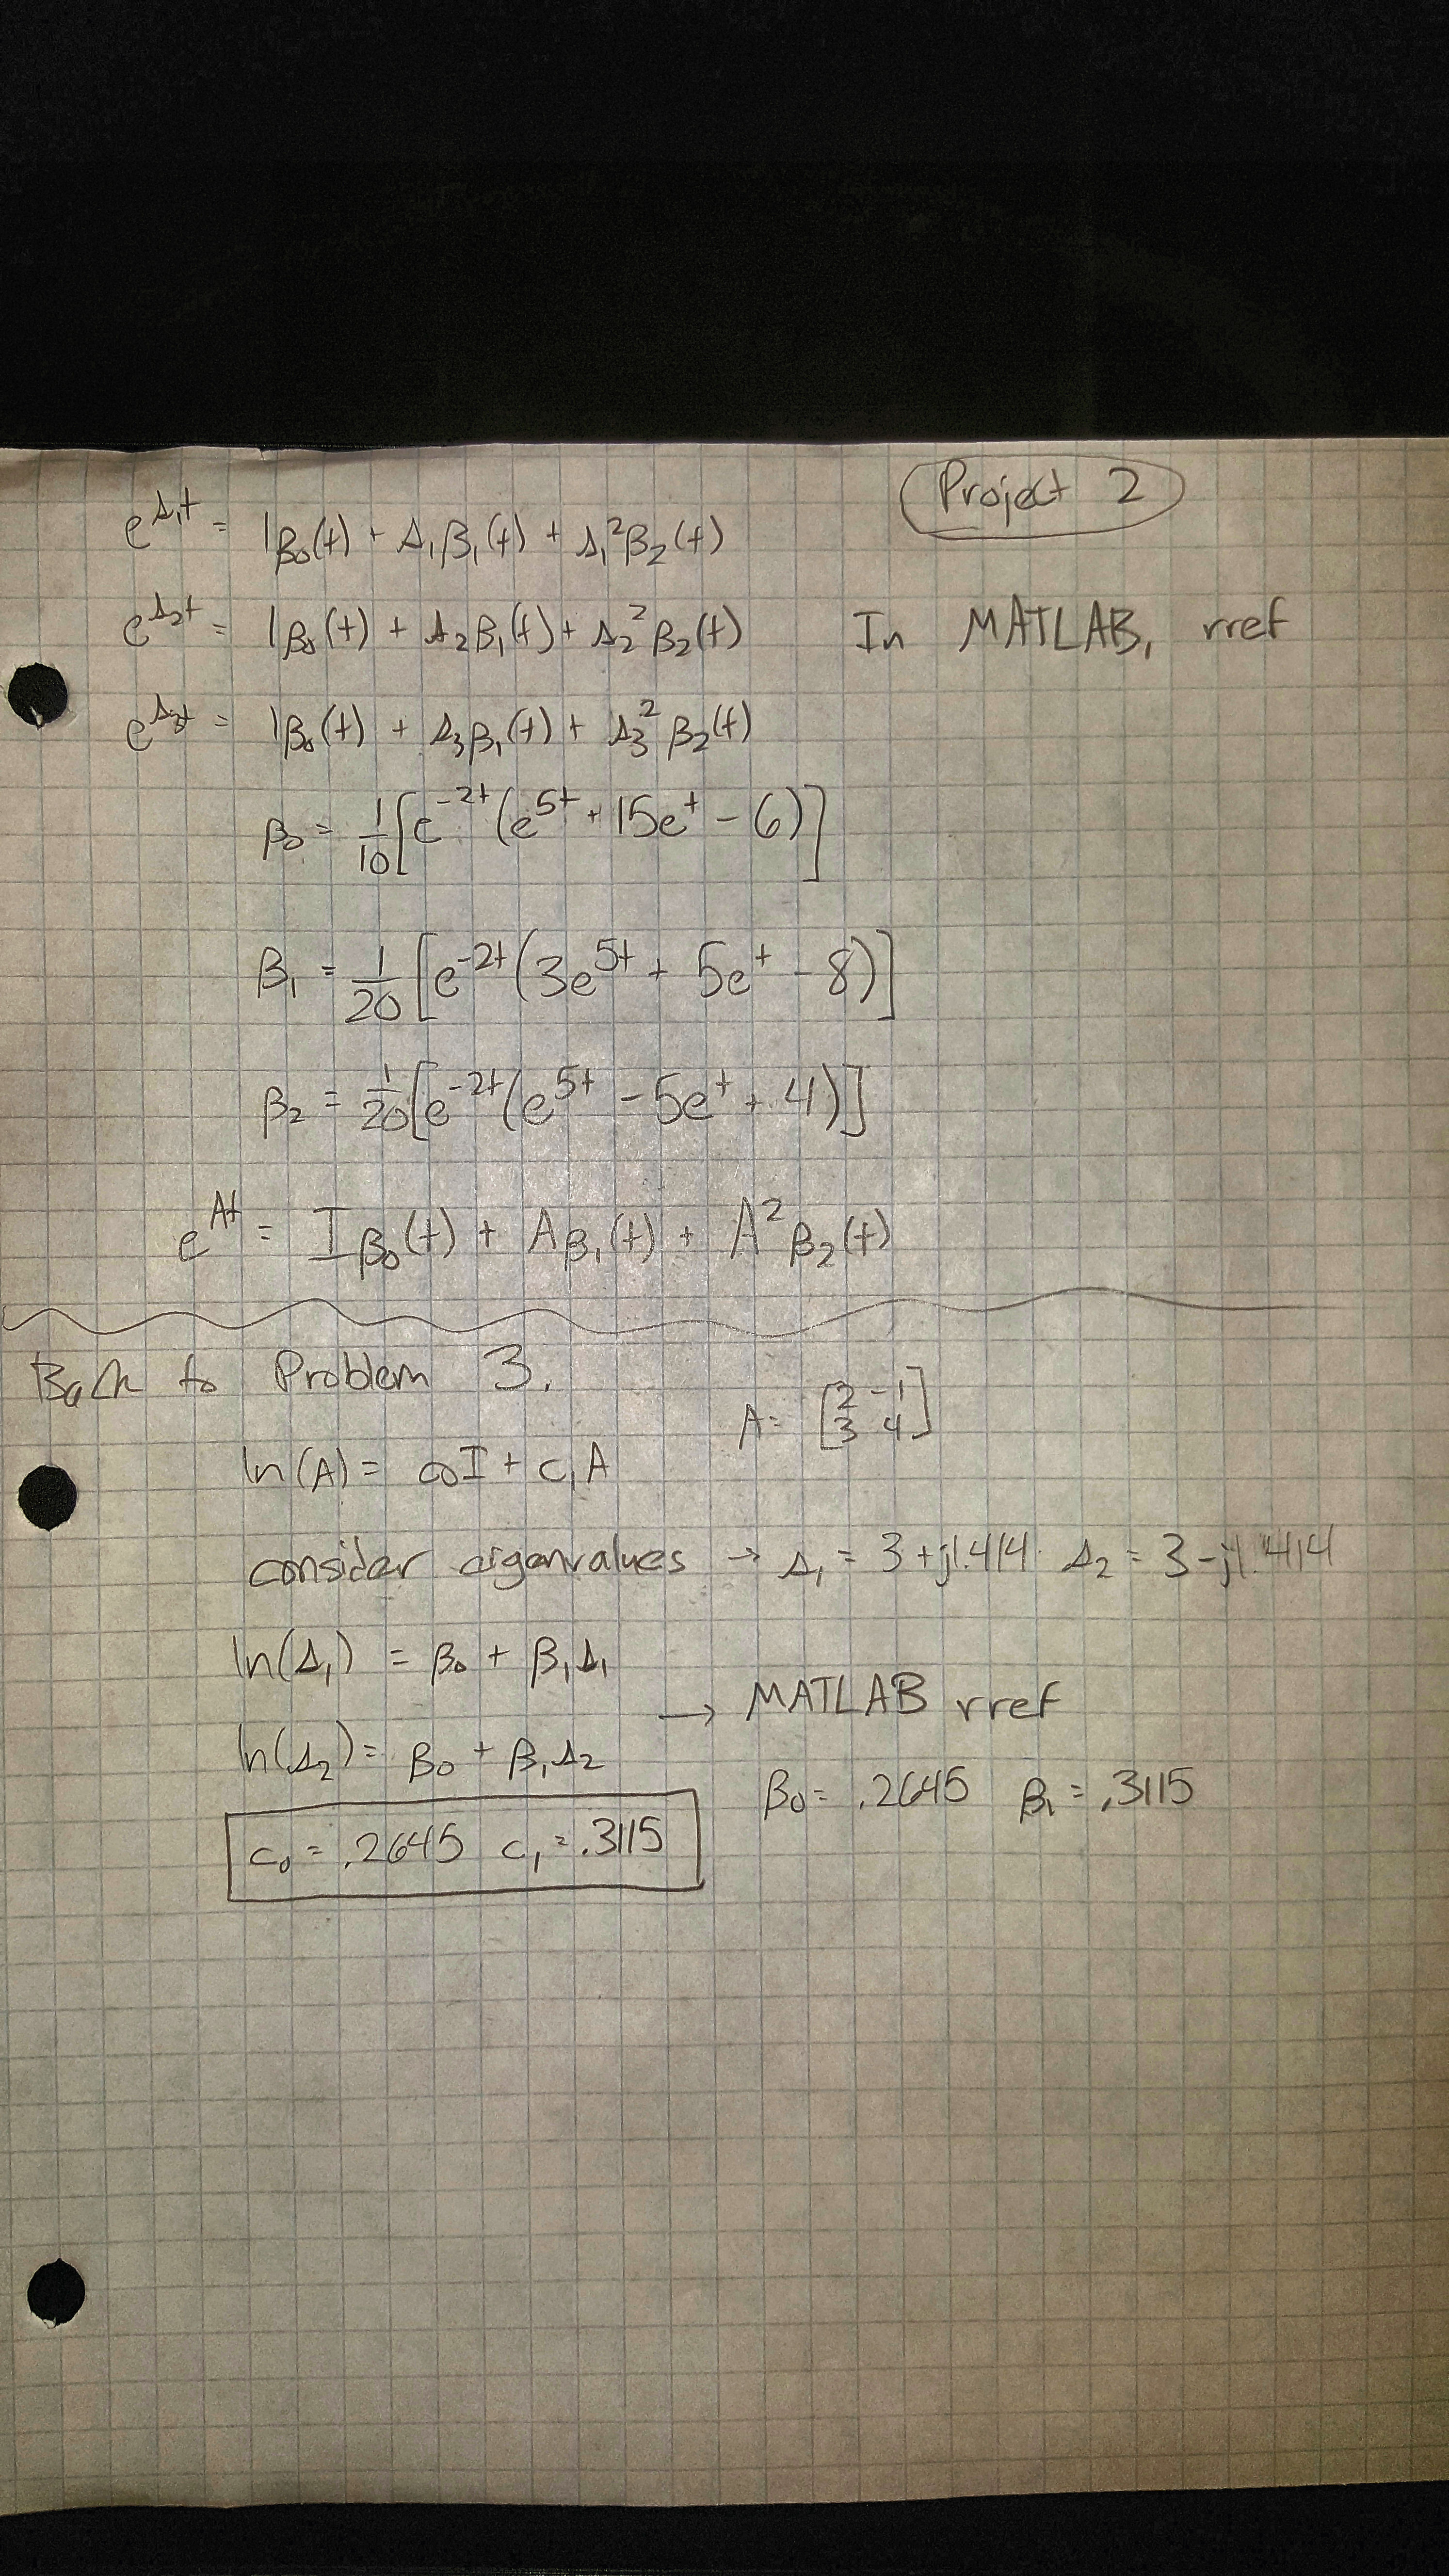 Project 2
e^λ₁t = 1β₀(t) + λ₁β₁(t) + λ₁²β₂(t)
e^λ₂t = 1β₀(t) + λ₂β₁(t) + λ₂²β₂(t) In MATLAB, rref
e^λ₃t = 1β₀(t) + λ₃β₁(t) + λ₃²β₂(t)
β₀ = 1/10 [e^-2t (e^5t + 15e^t - 6)]
β₁ = 1/20 [e^-2t (3e^5t + 5e^t - 8)]
β₂ = 1/20 [e^-2t (e^5t - 5e^t + 4)]
e^At = Iβ₀(t) + Aβ₁(t) + A²β₂(t)
Back to Problem 3.
A = [2 -1; 3 4]
ln(A) = c₀I + c₁A
consider eigenvalues → λ₁ = 3+j1.414 λ₂ = 3-j1.414
ln(λ₁) = β₀ + β₁λ₁
→ MATLAB rref
ln(λ₂) = β₀ + β₁λ₂
β₀ = .2645 β₁ = .3115
c₀ = .2645 c₁ = .3115